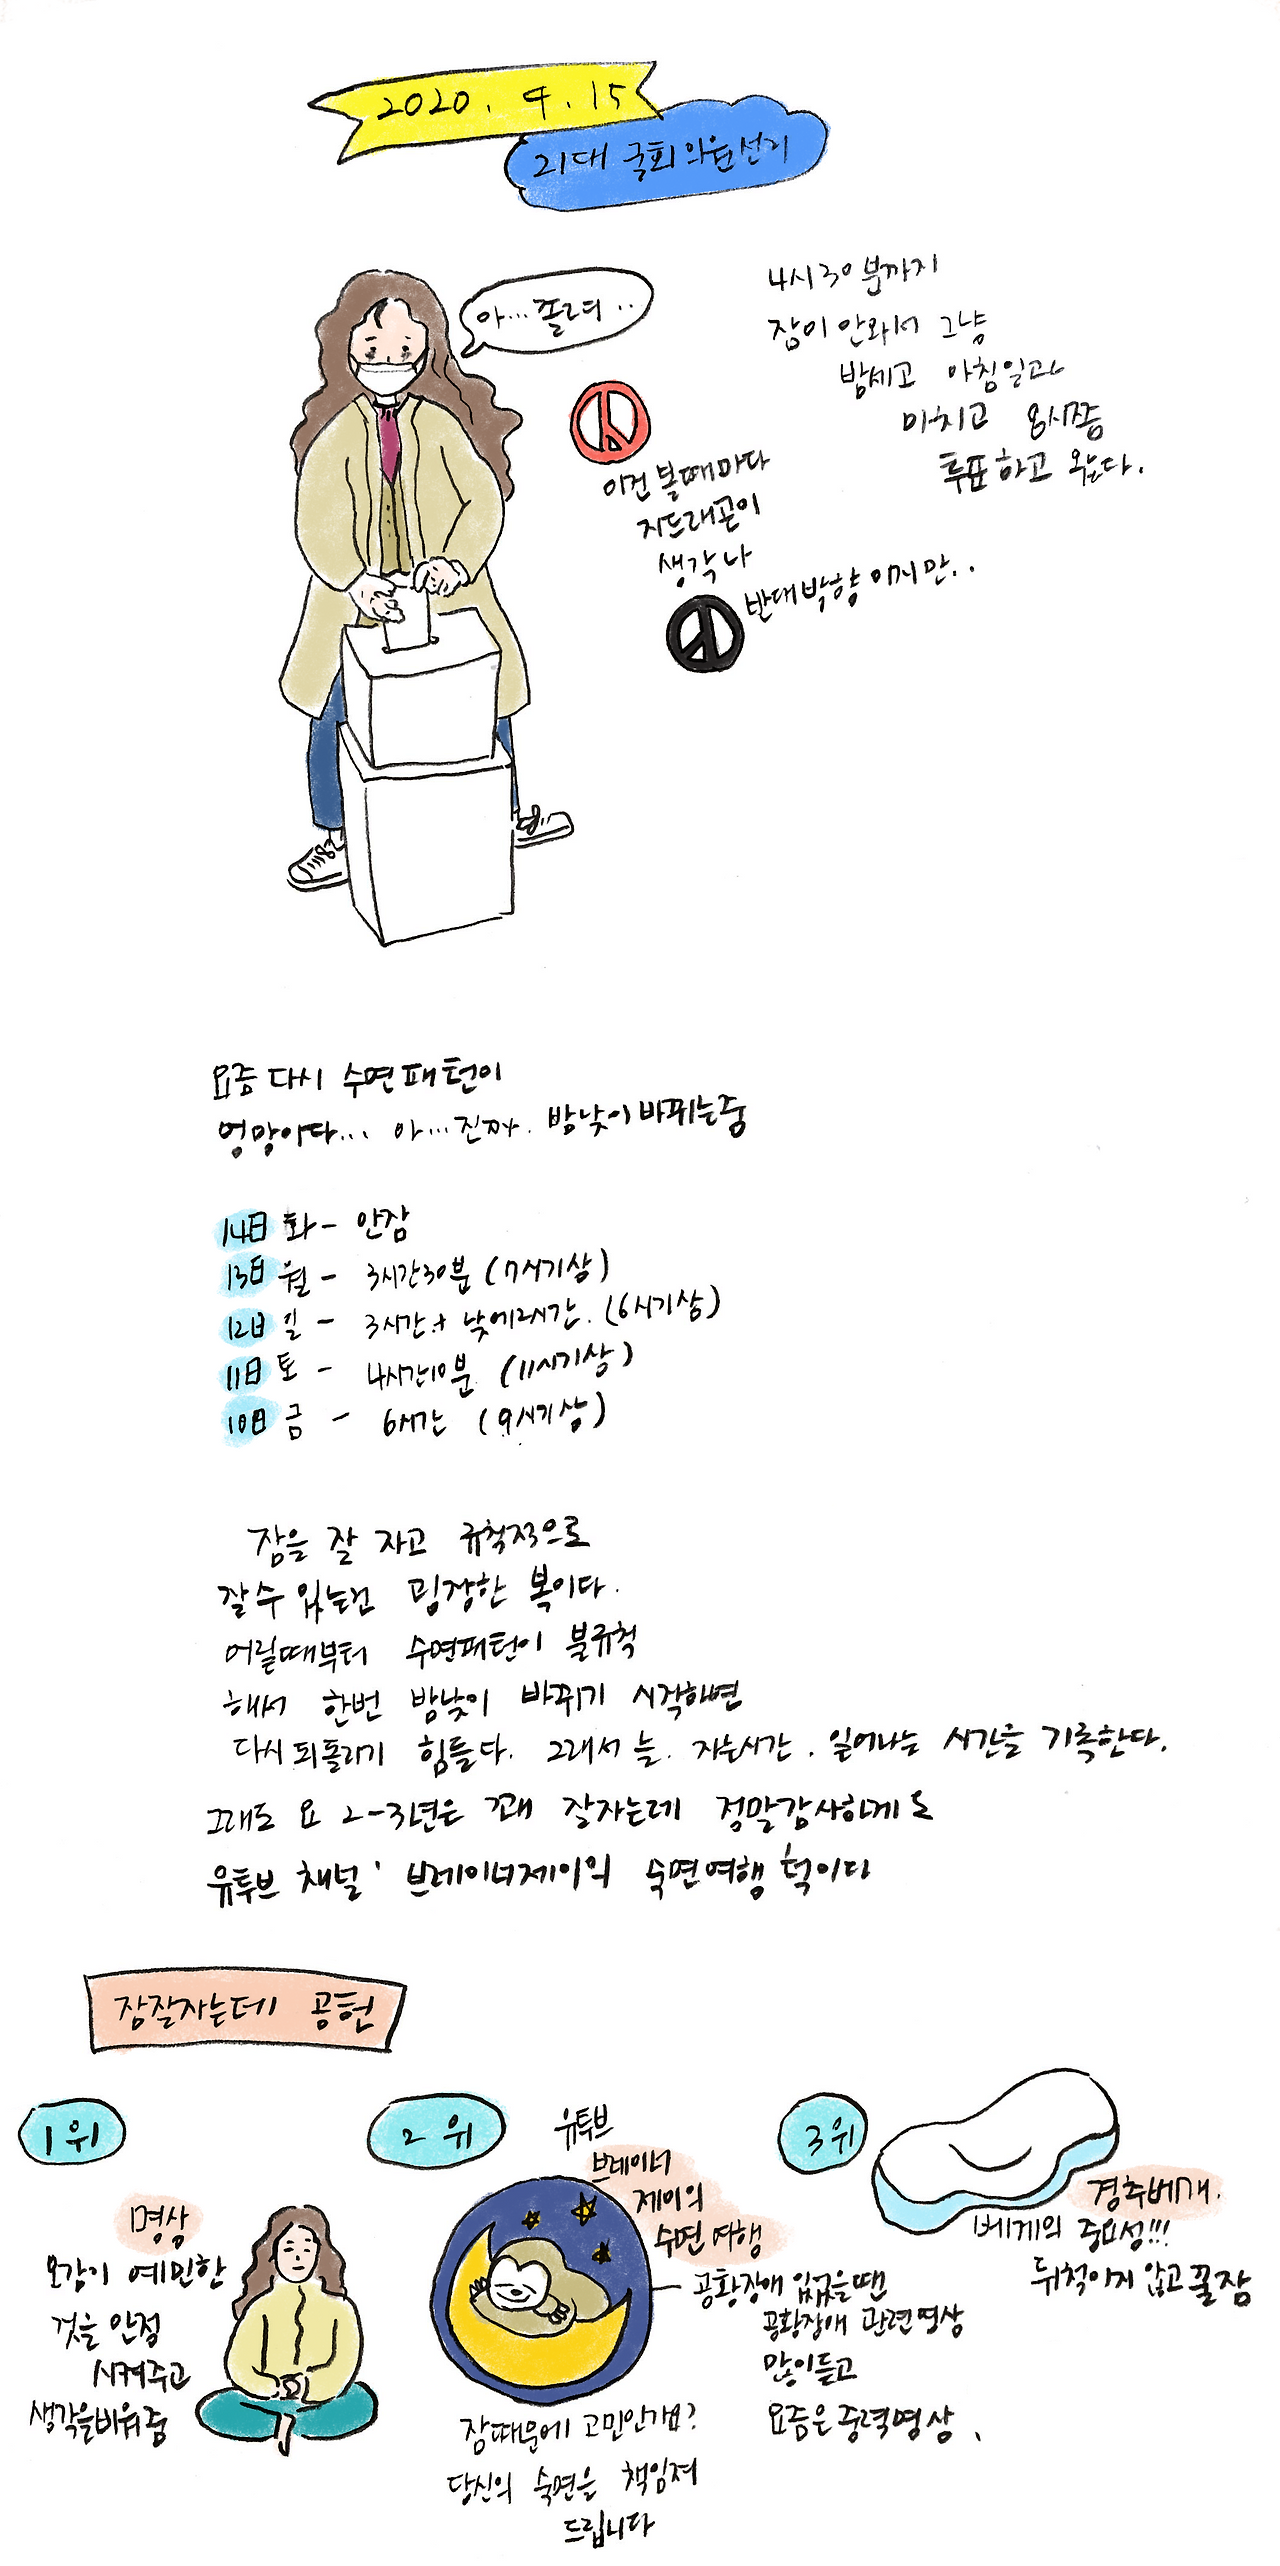 2020. 4. 15
21대 국회의원선거
아... 졸려..
4시30분까지
잠이 안와서 그냥
밤세고 아침일과
마치고 8시쯤
투표하고 왔다.
이건 볼때마다
지드래곤이
생각나
반대방향이지만..
요즘 다시 수면패턴이
엉망이다... 아...진짜. 밤낮이 바뀌는중
14日 화 - 안잠
13日 월 - 3시간30분 (7시기상)
12日 일 - 3시간 + 낮에2시간. (6시기상)
11日 토 - 4시간10분 (11시기상)
10日 금 - 6시간 (9시기상)
잠을 잘 자고 규칙적으로
잘수 있는건 굉장한 복이다.
어릴때부터 수면패턴이 불규칙
해서 한번 밤낮이 바뀌기 시작하면
다시 되돌리기 힘들다. 그래서 늘. 자는시간. 일어나는 시간을 기록한다.
그래도 요 2-3년은 꽤 잘자는데 정말감사하게도
유튜브 채널 ' 브레이너제이의 숙면여행 덕이다
잠잘자는데 공헌
1위
명상
오감기 예민한
것을 안정
시켜주고
생각을비워줌
2위
유튜브
브레이너
제이의
수면 여행
공황장애 있었을땐
공황장애 관련영상
많이듣고
요즘은 중력명상.
잠때문에 고민인가요?
당신의 숙면을 책임져
드립니다
3위
경추베개.
베게의 중요성!!!
뒤척이지 않고 꿀잠